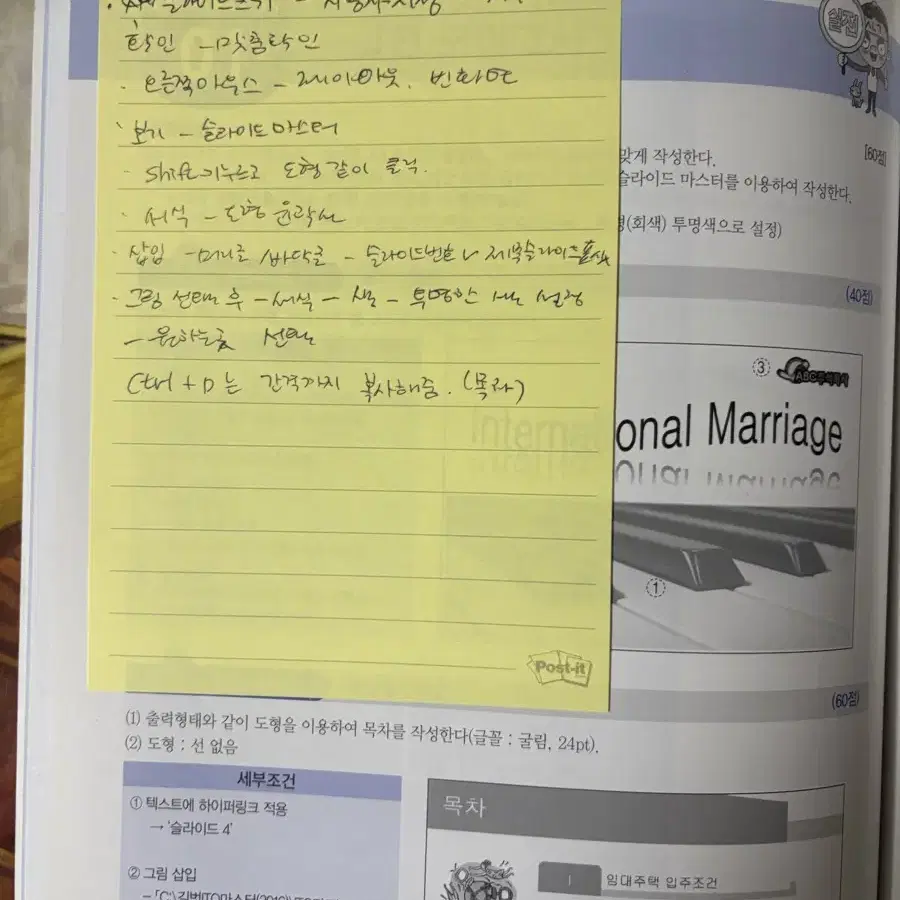 확인 - 맞춤확인
· 오른쪽마우스 - 레이아웃. 빈화면
· 보기 - 슬라이드 마스터
· shift키누르고 도형 같이 클릭.
· 서식 - 도형 윤곽선
· 삽입 - 머리글 / 바닥글 - 슬라이드번호
· 그림 선택 후 - 서식 - 색 - 투명한 색 설정
- 원하는곳 선택
Ctrl + D 는 간격까지 복사해줌. (목차)
실전
맞게 작성한다.
[60점]
슬라이드 마스터를 이용하여 작성한다.
(회색) 투명색으로 설정)
(40점)
③
onal Marriage
①
Post-it
(60점)
(1) 출력형태와 같이 도형을 이용하여 목차를 작성한다(글꼴 : 굴림, 24pt).
(2) 도형 : 선 없음
세부조건
① 텍스트에 하이퍼링크 적용
→ '슬라이드 4'
② 그림 삽입
목차
임대주택 입주조건